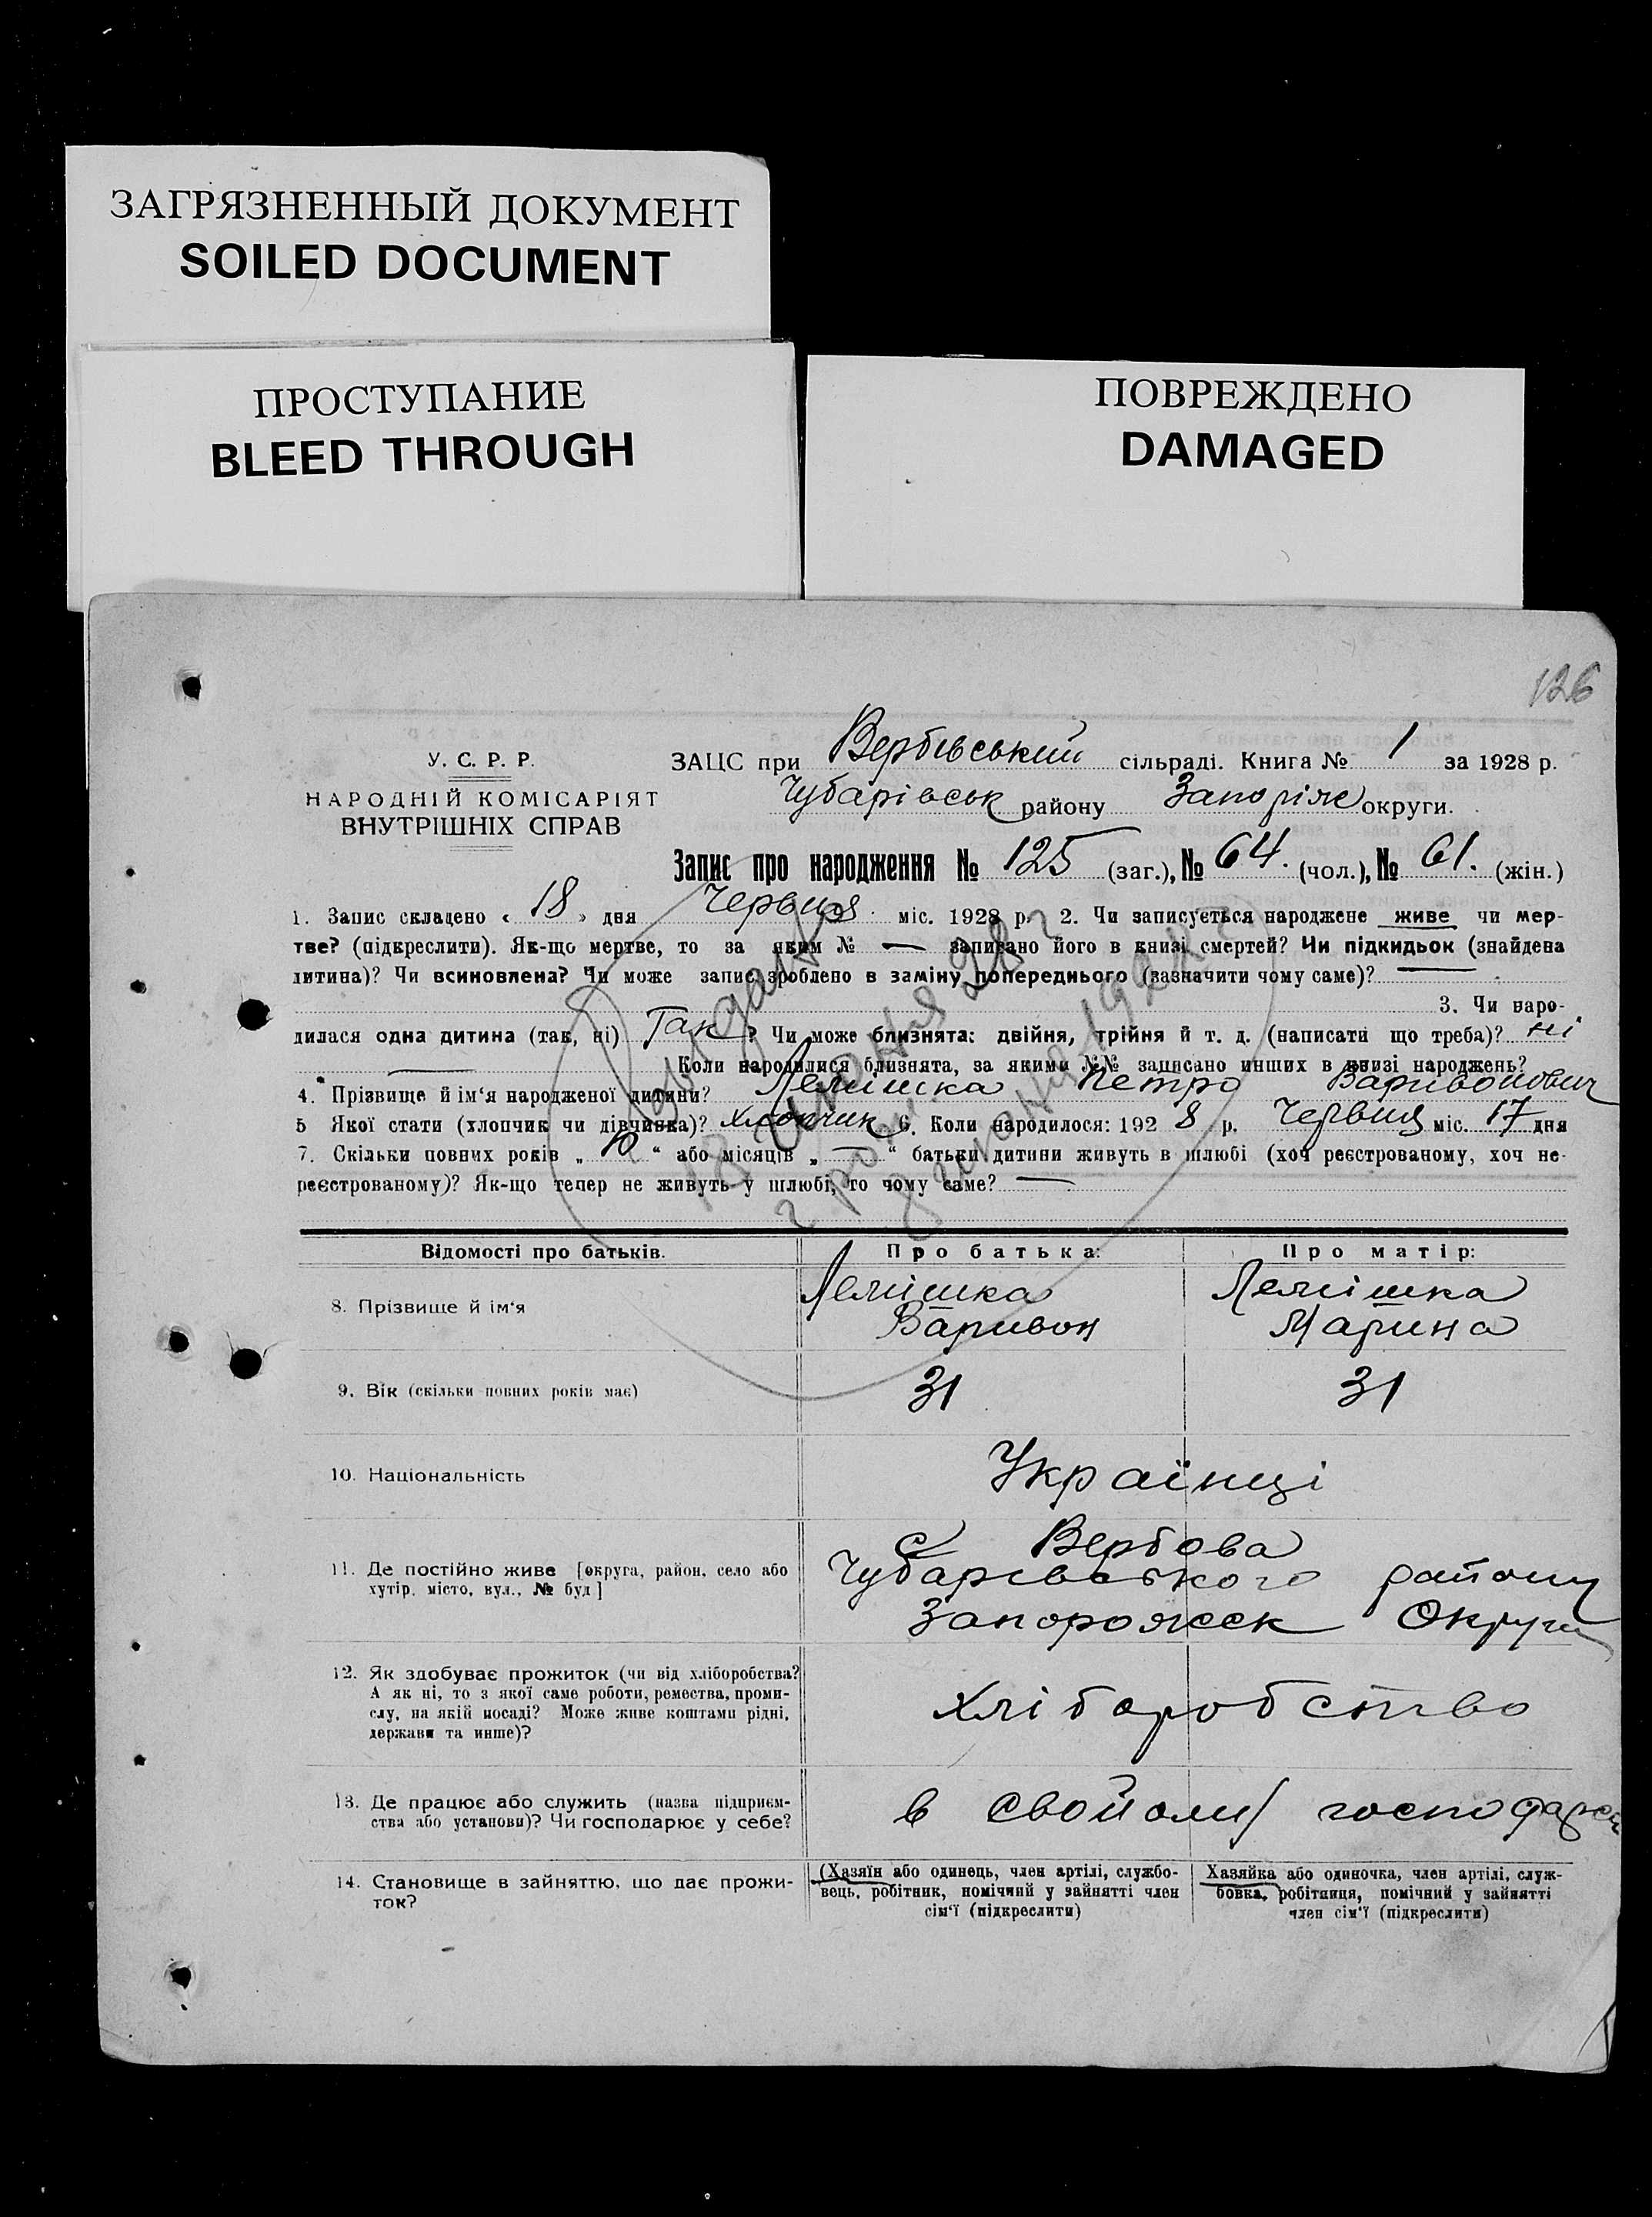 ЗАГРЯЗНЕННЫЙ ДОКУМЕНТ
SOILED DOCUMENT
ПРОСТУПАНИЕ
BLEED THROUGH
ПОВРЕЖДЕНО
DAMAGED
126
У. С. Р. Р.
НАРОДНІЙ КОМІСАРІЯТ
ВНУТРІШНІХ СПРАВ
ЗАЦС при Вербівський сільраді. Книга № 1 за 1928 р.
Чубарівськ району Запоріж округи.
Запис про народження № 125 (заг.), № 64. (чол.), № 61. (жін.)
1. Запис складено « 18 » дня Червця міс. 1928 р. 2. Чи записується народжене живе чи мер-
тве? (підкреслити). Як-що мертве, то за яким № — записано його в книзі смертей? Чи підкидьок (знайдена
дитина)? Чи всиновлена? Чи може запис зроблено в заміну попереднього (зазначити чому саме)? —
3. Чи наро-
дилася одна дитина (так, ні) Так ? Чи може близнята: двійня, трійня й т. д. (написати що треба)? ні
— Коли народилися близнята, за якими №№ записано инших в книзі народжень?
4. Прізвище й ім'я народженої дитини? Лемішка Петро Варивонович
5 Якої стати (хлопчик чи дівчинка)? хлопчик 6. Коли народилося: 192 8 р. Червця міс. 17 дня
7. Скільки повних років „ 10 “ або місяців „ — “ батьки дитини живуть в шлюбі (хоч реєстрованому, хоч не-
реєстрованому)? Як-що тепер не живуть у шлюбі, то чому саме? —
Відомості про батьків. Про батька: Про матір:
8. Прізвище й ім'я Лемішка Варивон Лемішка Марина
9. Вік (скільки повних років має) 31 31
10. Національність Українці
11. Де постійно живе [округа, район, село або
хутір, місто, вул., № буд]
с Вербова
Чубарівського району
Запорожск Округи
12. Як здобуває прожиток (чи від хліборобства?
А як ні, то з якої саме роботи, ремества, проми-
слу, на якій посаді? Може живе коштами рідні,
держави та инше)?
хліборобство
13. Де працює або служить (назва підприєм-
ства або установи)? Чи господарює у себе?
в свойому
14. Становище в зайняттю, що дає прожи-
ток?
(Хазяїн або одинець, член артілі, службо-
вець, робітник, помічний у зайнятті член
сім'ї (підкреслити)
Хазяйка або одиночка, член артілі, служ-
бовка, робітниця, помічний у зайнятті
член сім'ї (підкреслити)